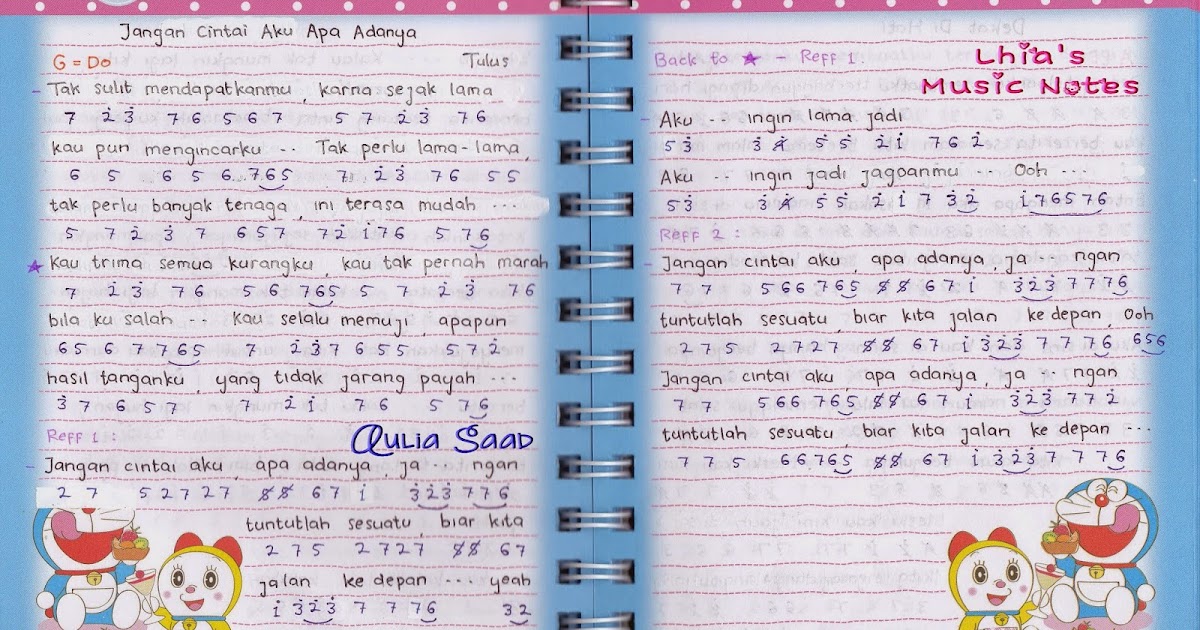 Jangan Cintai Aku Apa Adanya
G = Do Tulus
- Tak sulit mendapatkanmu, karna sejak lama
7 2̇ 3̇ 7 6 5 6 7 5 7 2̇ 3̇ 7 6
kau pun mengincarku .. Tak perlu lama-lama,
6 5 6 5 6 765 7 2̇ 3̇ 7 6 5 5
tak perlu banyak tenaga, ini terasa mudah ....
5 7 2̇ 3̇ 7 6 5 7 7 2̇ 1̇ 7 6 5 76
★ Kau trima semua kurangku, kau tak pernah marah
7 2̇ 3̇ 7 6 5 6 765 5 7 2̇ 3̇ 7 6
bila ku salah .. Kau selalu memuji, apapun
65 6 7 765 7 2̇ 3̇ 7 6 5 5 5 7 2̇
hasil tanganku, yang tidak jarang payah ...
3̇ 7 6 5 7 7 2̇ 1̇ 7 6 5 76
Reff 1 : Aulia Saad
- Jangan cintai aku, apa adanya, ja .. ngan
2 7 5 2 7 2 7 5̸ 5̸ 6 7 1̇ 3̇2̇3̇ 7 7 6
tuntutlah sesuatu, biar kita
2 7 5 2 7 2 7 5̸ 5̸ 6 7
jalan ke depan .... yeah
1̇ 3̇2̇3̇ 7 7 76 32
Back to ★ - Reff 1
Lhia's
Music Notes
- Aku .. ingin lama jadi
5 3̇ 3̇ 4̸ 5 5 2̇ 1̇ 7 6 2̇
Aku .. ingin jadi jagoanmu .. Ooh ....
5 3̇ 3̇ 4̸ 5 5 2̇ 1̇ 7 3̇2̇ 1̇76576
Reff 2 :
- Jangan cintai aku, apa adanya, ja .. ngan
7 7 5 6 6 7 65 5̸ 5̸ 6 7 1̇ 3̇2̇3̇ 7 7 76
tuntutlah sesuatu, biar kita jalan ke depan, Ooh
2 7 5 2 7 2 7 5̸ 5̸ 6 7 1̇ 3̇2̇3̇ 7 7 76 656
Jangan cintai aku, apa adanya, ja .. ngan
7 7 5 6 6 7 65 5̸ 5̸ 6 7 1̇ 3̇2̇3̇ 7 7 2̇
tuntutlah sesuatu, biar kita jalan ke depan ...
7 7 5 6 6 7 65 5̸ 5̸ 6 7 1̇ 3̇2̇3̇ 7 7 76